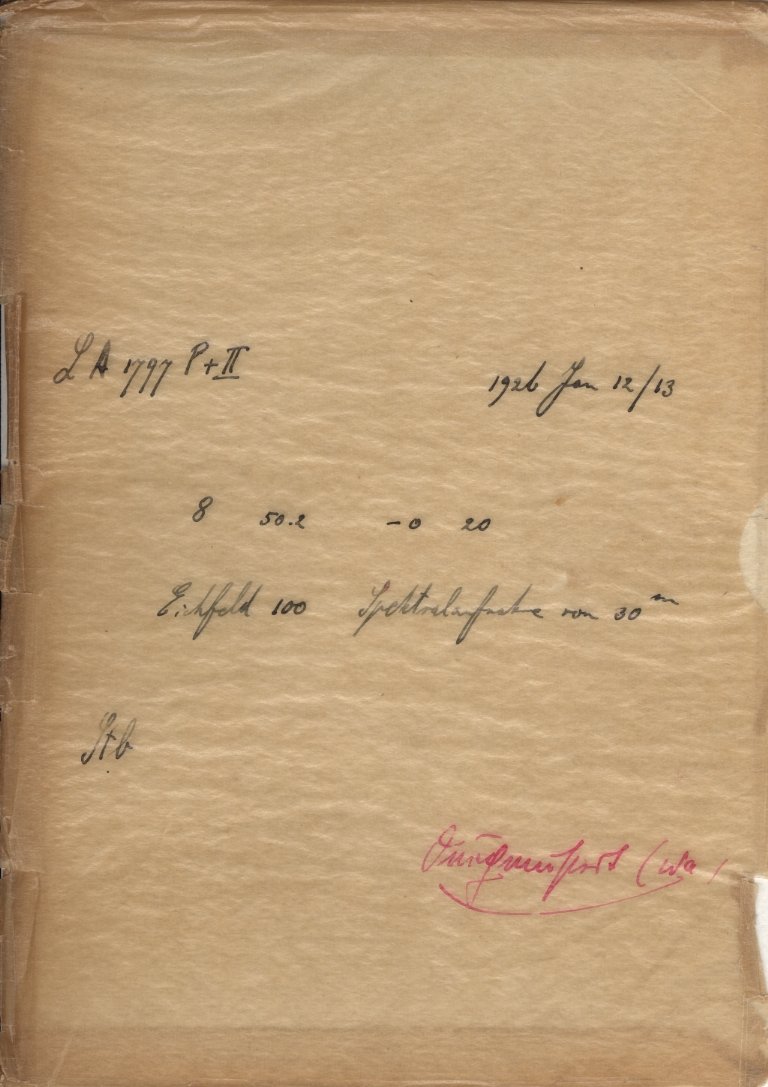 L A 1797 P + II
1926 Jan 12/13
8 50.2 -0 20
Eichfeld 100 Spektralaufnahme von 30 m
Stb
(Wa)